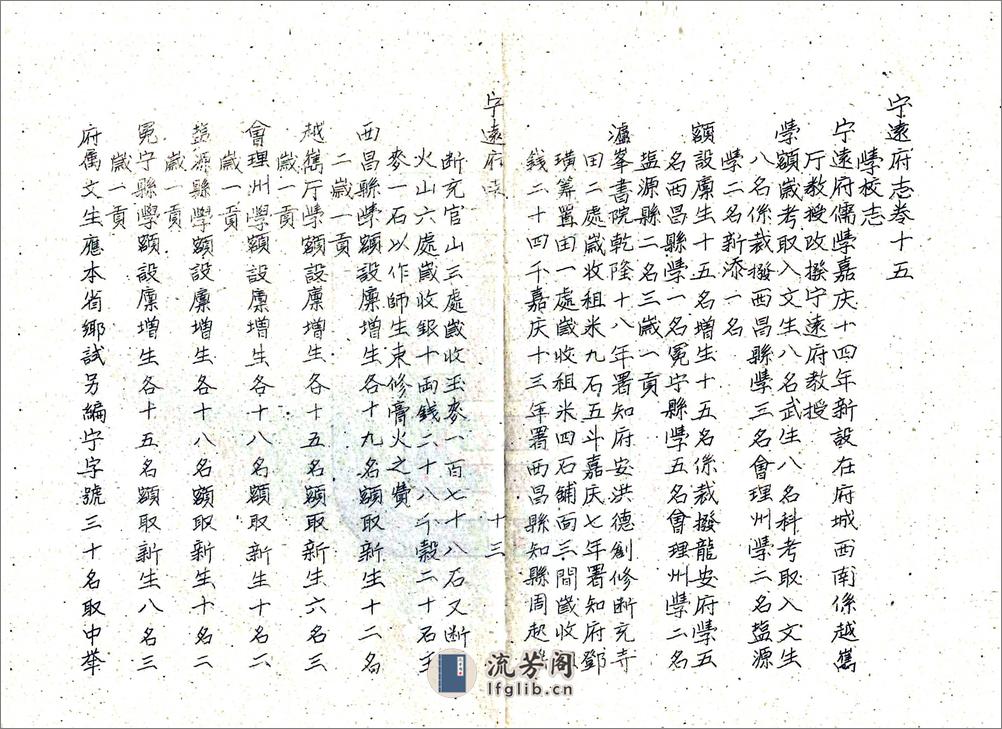 宁遠府志卷十五
學校志
宁遠府儒學嘉庆十四年新設在府城西南係越嶲
厅教授改撥宁遠府教授
學額歲考取入文生八名武生八名科考取入文生
八名係裁撥西昌縣學三名會理州學二名盐源
學二名新添一名
額設廪生十五名增生十五名係裁撥龍安府學五
名西昌縣學一名冕宁縣學五名會理州學二名
盐源縣二名三歲一貢
瀘峯書院乾隆十八年署知府安洪德創修断充寺
田二處歲收租米九石五斗嘉庆七年署知府鄧
璜筹置田一處歲收租米四石舖面三間歲收
錢二十四千嘉庆十三年署西昌縣知縣周起
宁遠府志
十三
断充官山三處歲收玉麥一百七十八石又断
火山六處歲收銀十両錢二十八千穀二十石玉
麥一石以作師生束修膏火之費
西昌縣學額設廪增生各十九名額取新生十二名
二歲一貢
越嶲厅學額設廪增生各十五名額取新生六名三
歲一貢
會理州學額設廪增生各十八名額取新生十名二
歲一貢
盐源縣學額設廪增生各十八名額取新生十名二
歲一貢
冕宁縣學額設廪增生各十五名額取新生八名三
歲一貢
府属文生應本省鄉試另編宁字號三十名取中举
流芳阁
lfglib.cn